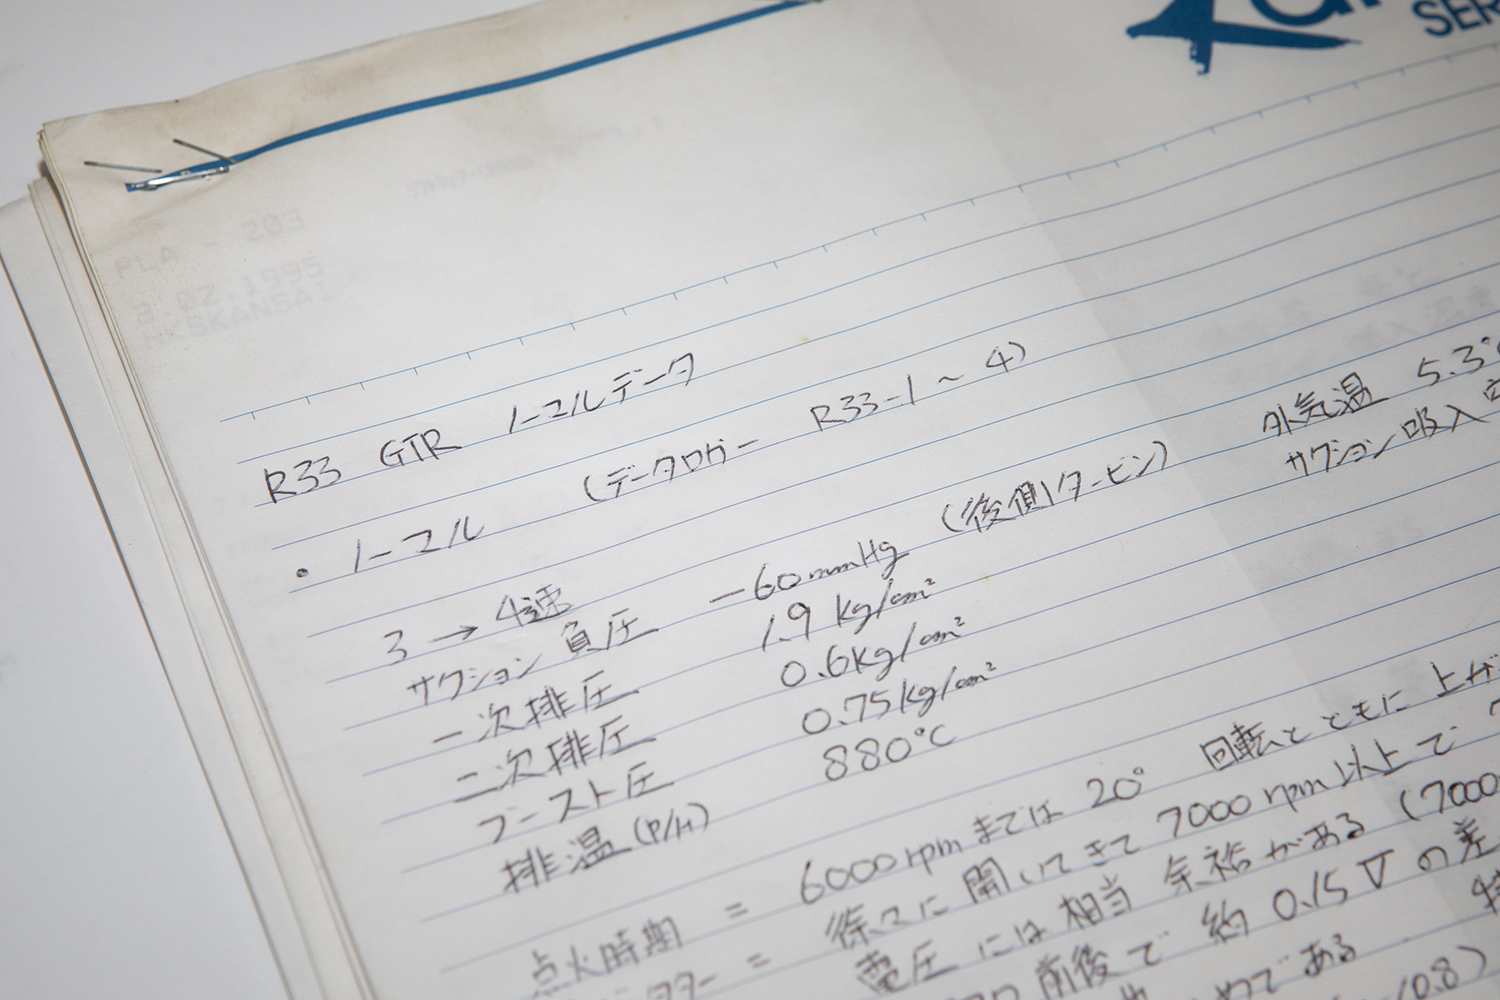 SER
PLA - 203
02.1995
SKANSAI
R33 GTR ノーマルデータ
・ノーマル (データロガー R33-1 ~ 4)
外気温 5.3°
サクション吸入
3 → 4速
サクション負圧 -60mmHg (後側タービン)
一次排圧 1.9 kg/cm²
二次排圧 0.6kg/cm²
ブースト圧 0.75kg/cm²
排温(P/H) 880℃
点火時期 = 6000rpmまでは 20° 回転とともに 上が
= 徐々に 開いてきて 7000rpm以上で
電圧には相当 余裕がある (7000
前後で 約 0.15V の差
である
0.8)